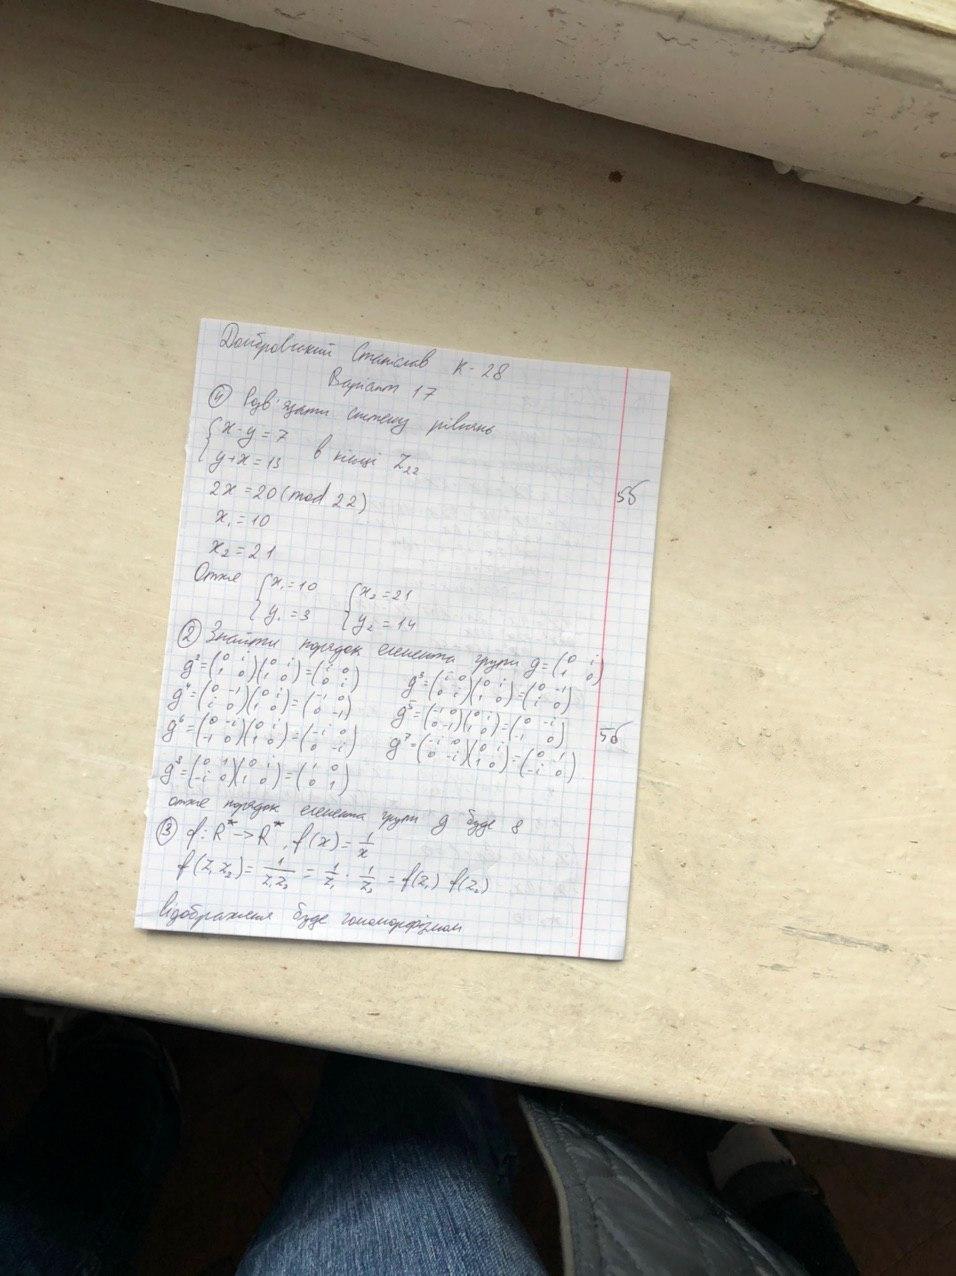 Домбровський Станіслав К-28
Варіант 17
① Розв'язати систему рівнянь
{x-y=7
{y+x=13 в кільці Z₂₂
2x=20(mod 22) 5б
x₁=10
x₂=21
Отже {x₁=10 {x₂=21
{y₁=3 {y₂=14
② Знайти порядок елемента групи g=(0 i; 1 0)
g²=(0 i; 1 0)(0 i; 1 0)=(i 0; 0 i) g³=(i 0; 0 i)(0 i; 1 0)=(0 -1; i 0)
g⁴=(0 -1; i 0)(0 i; 1 0)=(-1 0; 0 -1) g⁵=(-1 0; 0 -1)(0 i; 1 0)=(0 -i; -1 0) 5б
g⁶=(0 -i; -1 0)(0 i; 1 0)=(-i 0; 0 -i) g⁷=(-i 0; 0 -i)(0 i; 1 0)=(0 1; -i 0)
g⁸=(0 1; -i 0)(0 i; 1 0)=(1 0; 0 1)
отже порядок елемента групи g буде 8
③ f: R*->R*, f(x)=1/x
f(Z₁Z₂)=1/Z₁Z₂=1/Z₁·1/Z₂=f(Z₁) f(Z₂)
відображення буде гомоморфізмом